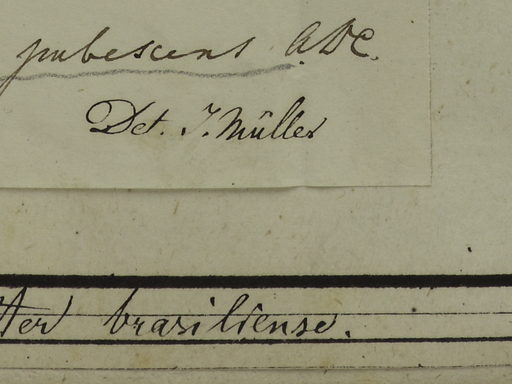 pubescens A. DC.
Det. J. Müller
Iter brasiliense.